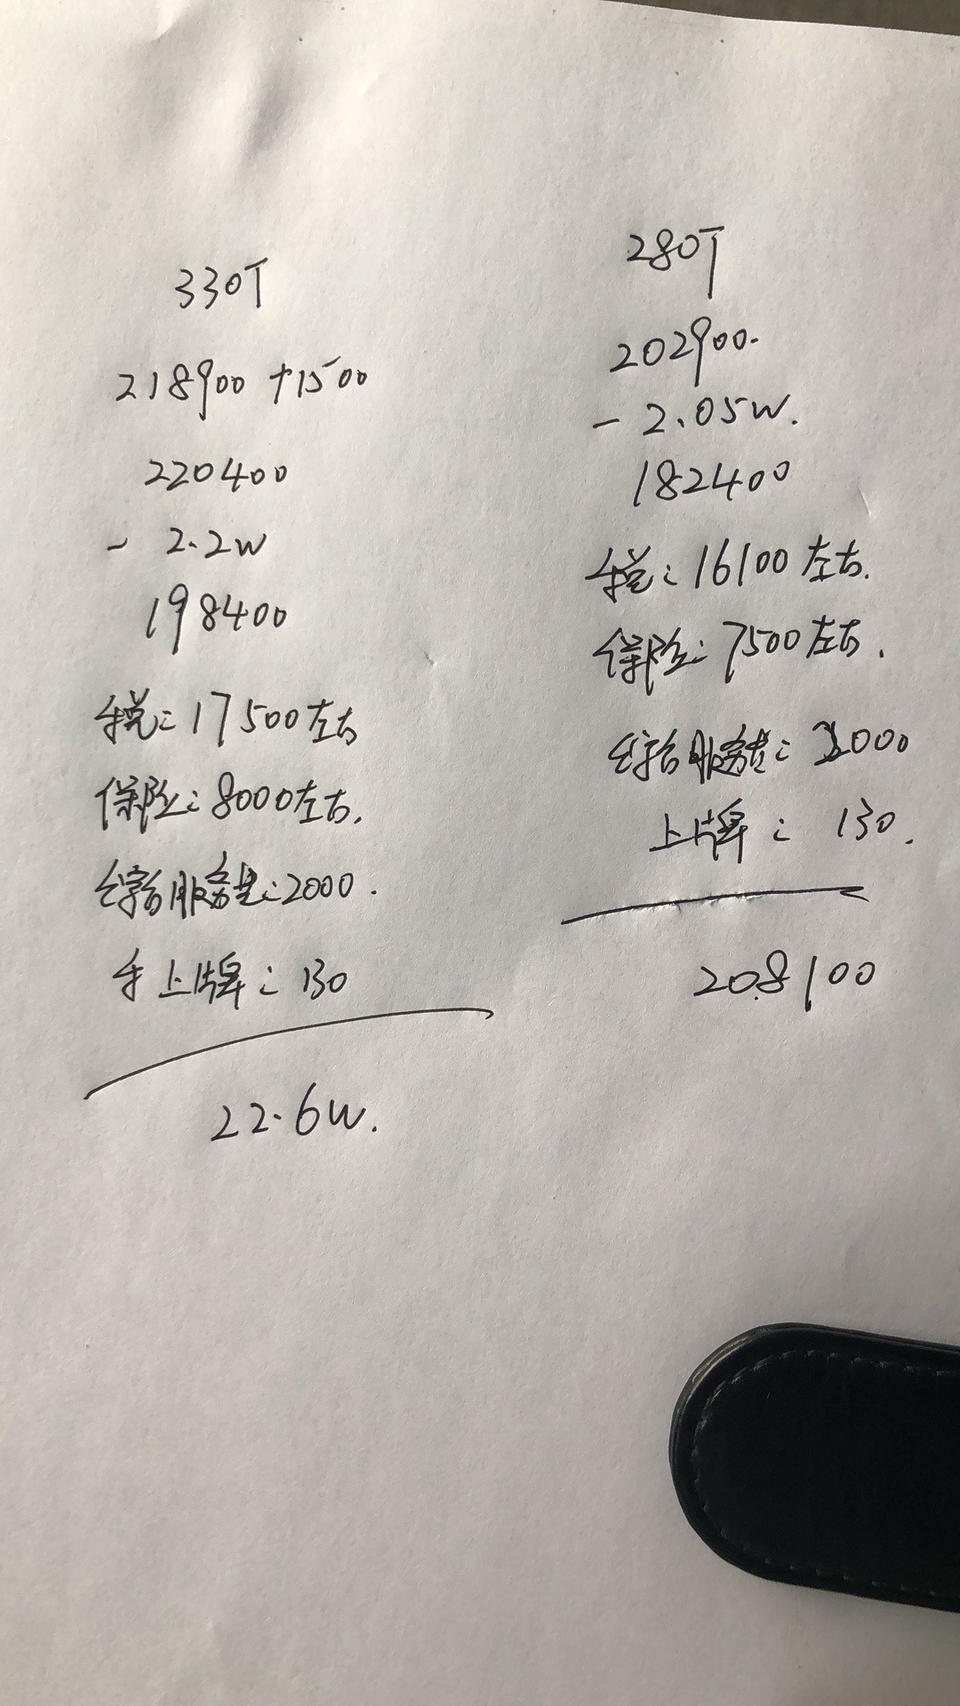 330T
218900 +1500
220400
- 2.2w
198400
税：17500左右
保险：8000左右.
综合服务费：2000.
上牌：130
22.6W.
280T
202900.
- 2.05W.
182400
税：16100左右.
保险：7500左右.
综合服务费：2000
上牌：130.
208100